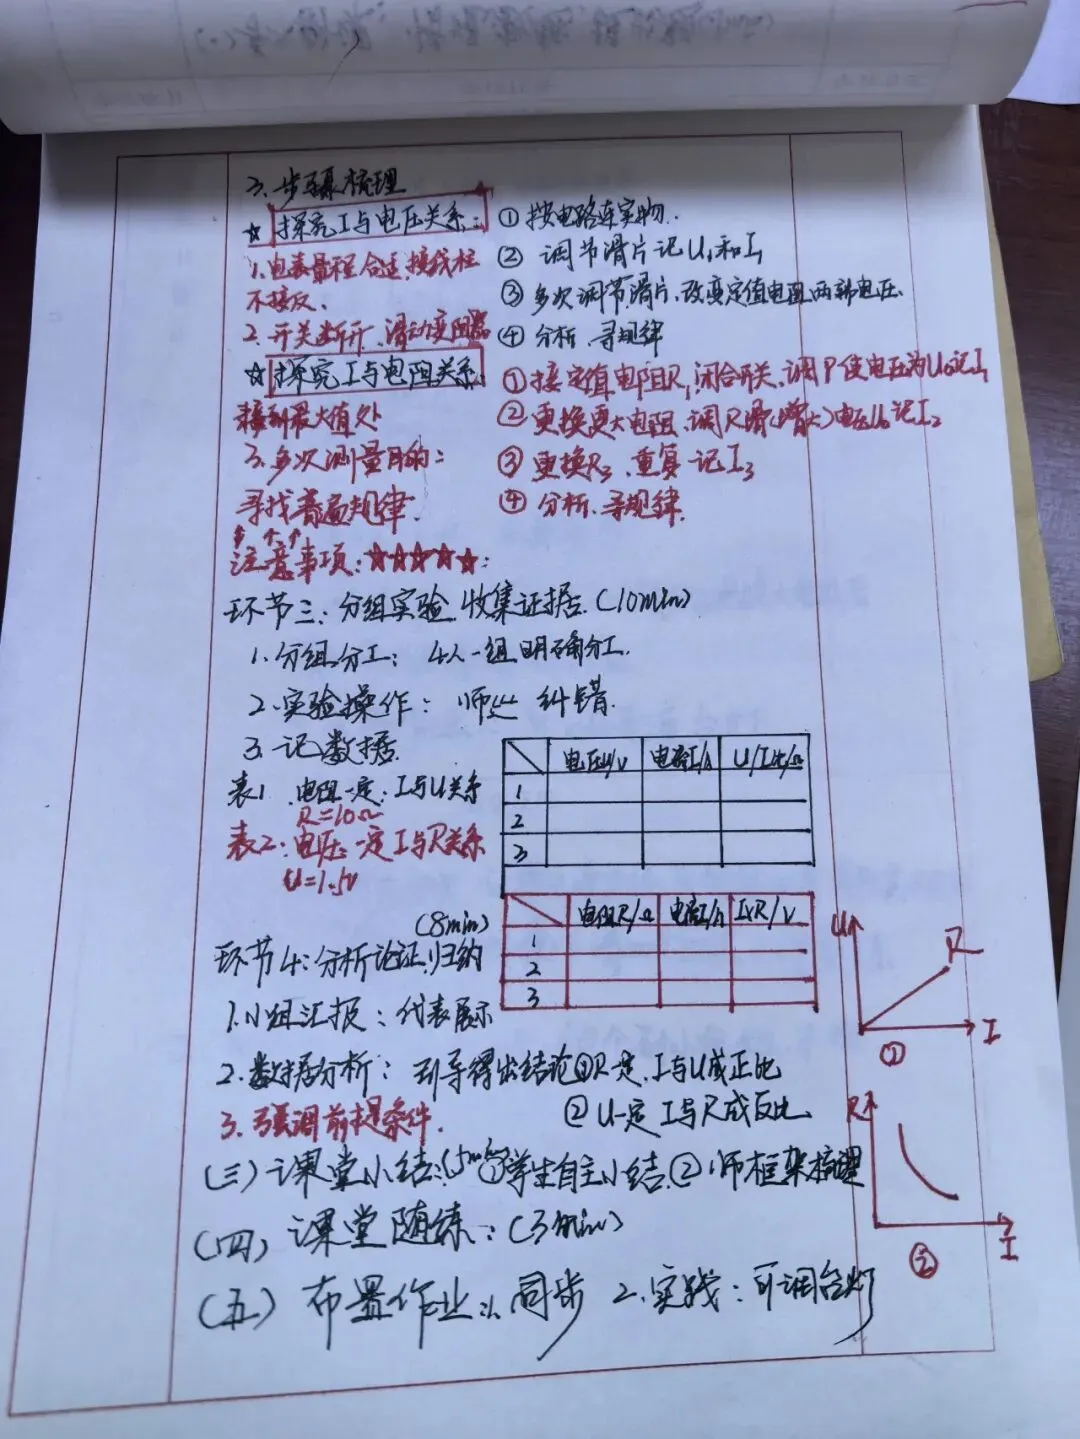 3. 步骤梳理
☆ 探究I与电压关系:
① 按电路连实物.
1. 电表量程合适,接线柱
不接反.
② 调节滑片记U₁和I₁
③ 多次调节滑片,改变定值电阻两端电压.
2. 开关断开,滑动变阻器
④ 分析、寻规律
☆ 探究I与电阻关系:
① 接定值电阻R₁,闭合开关,调P使电压为U₀记I₁
接到最大值处
② 更换更大电阻,调R滑(增大)电压U₀记I₂
3. 多次测量目的:
③ 更换R₃、重复 记I₃
寻找普遍规律.
④ 分析、寻规律.
注意事项:☆☆☆☆☆:
环节三:分组实验 收集证据.(10min)
1. 分组分工: 4人一组 明确分工.
2. 实验操作: 师 纠错.
3. 记数据.
表1 电阻一定,I与U关系
R=10Ω
表2:电压一定I与R关系
U=1.5V
电压U/V 电流I/A U/I比/Ω
1
2
3
电阻R/Ω 电流I/A IxR/V
1
2
3
(8min)
环节4:分析论证,归纳
1. 小组汇报:代表展示
2. 数据分析: 引导得出结论①R一定,I与U成正比
② U一定 I与R成反比.
3. 强调前提条件.
U R I
①
R I
②
(三) 课堂小结:(5min)①学生自主小结.② 师框架梳理
(四) 课堂随练:(3min)
(五) 布置作业:1. 同步 2. 实践:可调台灯